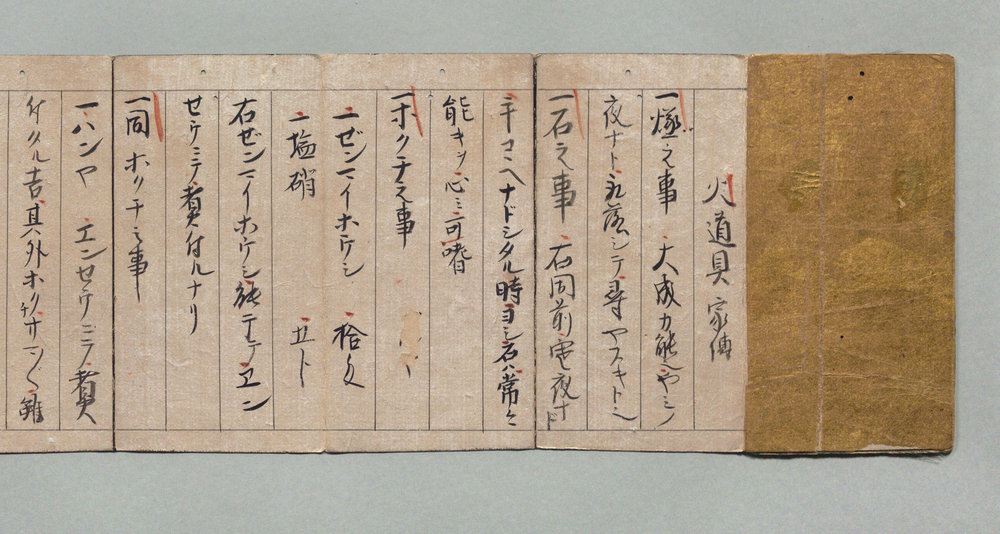 火道具家傳
一燧之事 大成カ能ヤシ
夜ナト取落シテ尋ヤスキトミ
一石之事 右同前
手コヘナドシタル時ヨシ石ハ常々
能キッ心ミ可嗜
一ホクチ之事
一ゼンマイホウシ 拾匁
一塩硝 五
右ゼンマイホウシ能 テエン
セウニテ煮付ルナリ
一同ホクチ之事
一ハンヤ エンセウニテ煮
付タル吉其外ホクチサマ〴〵雖